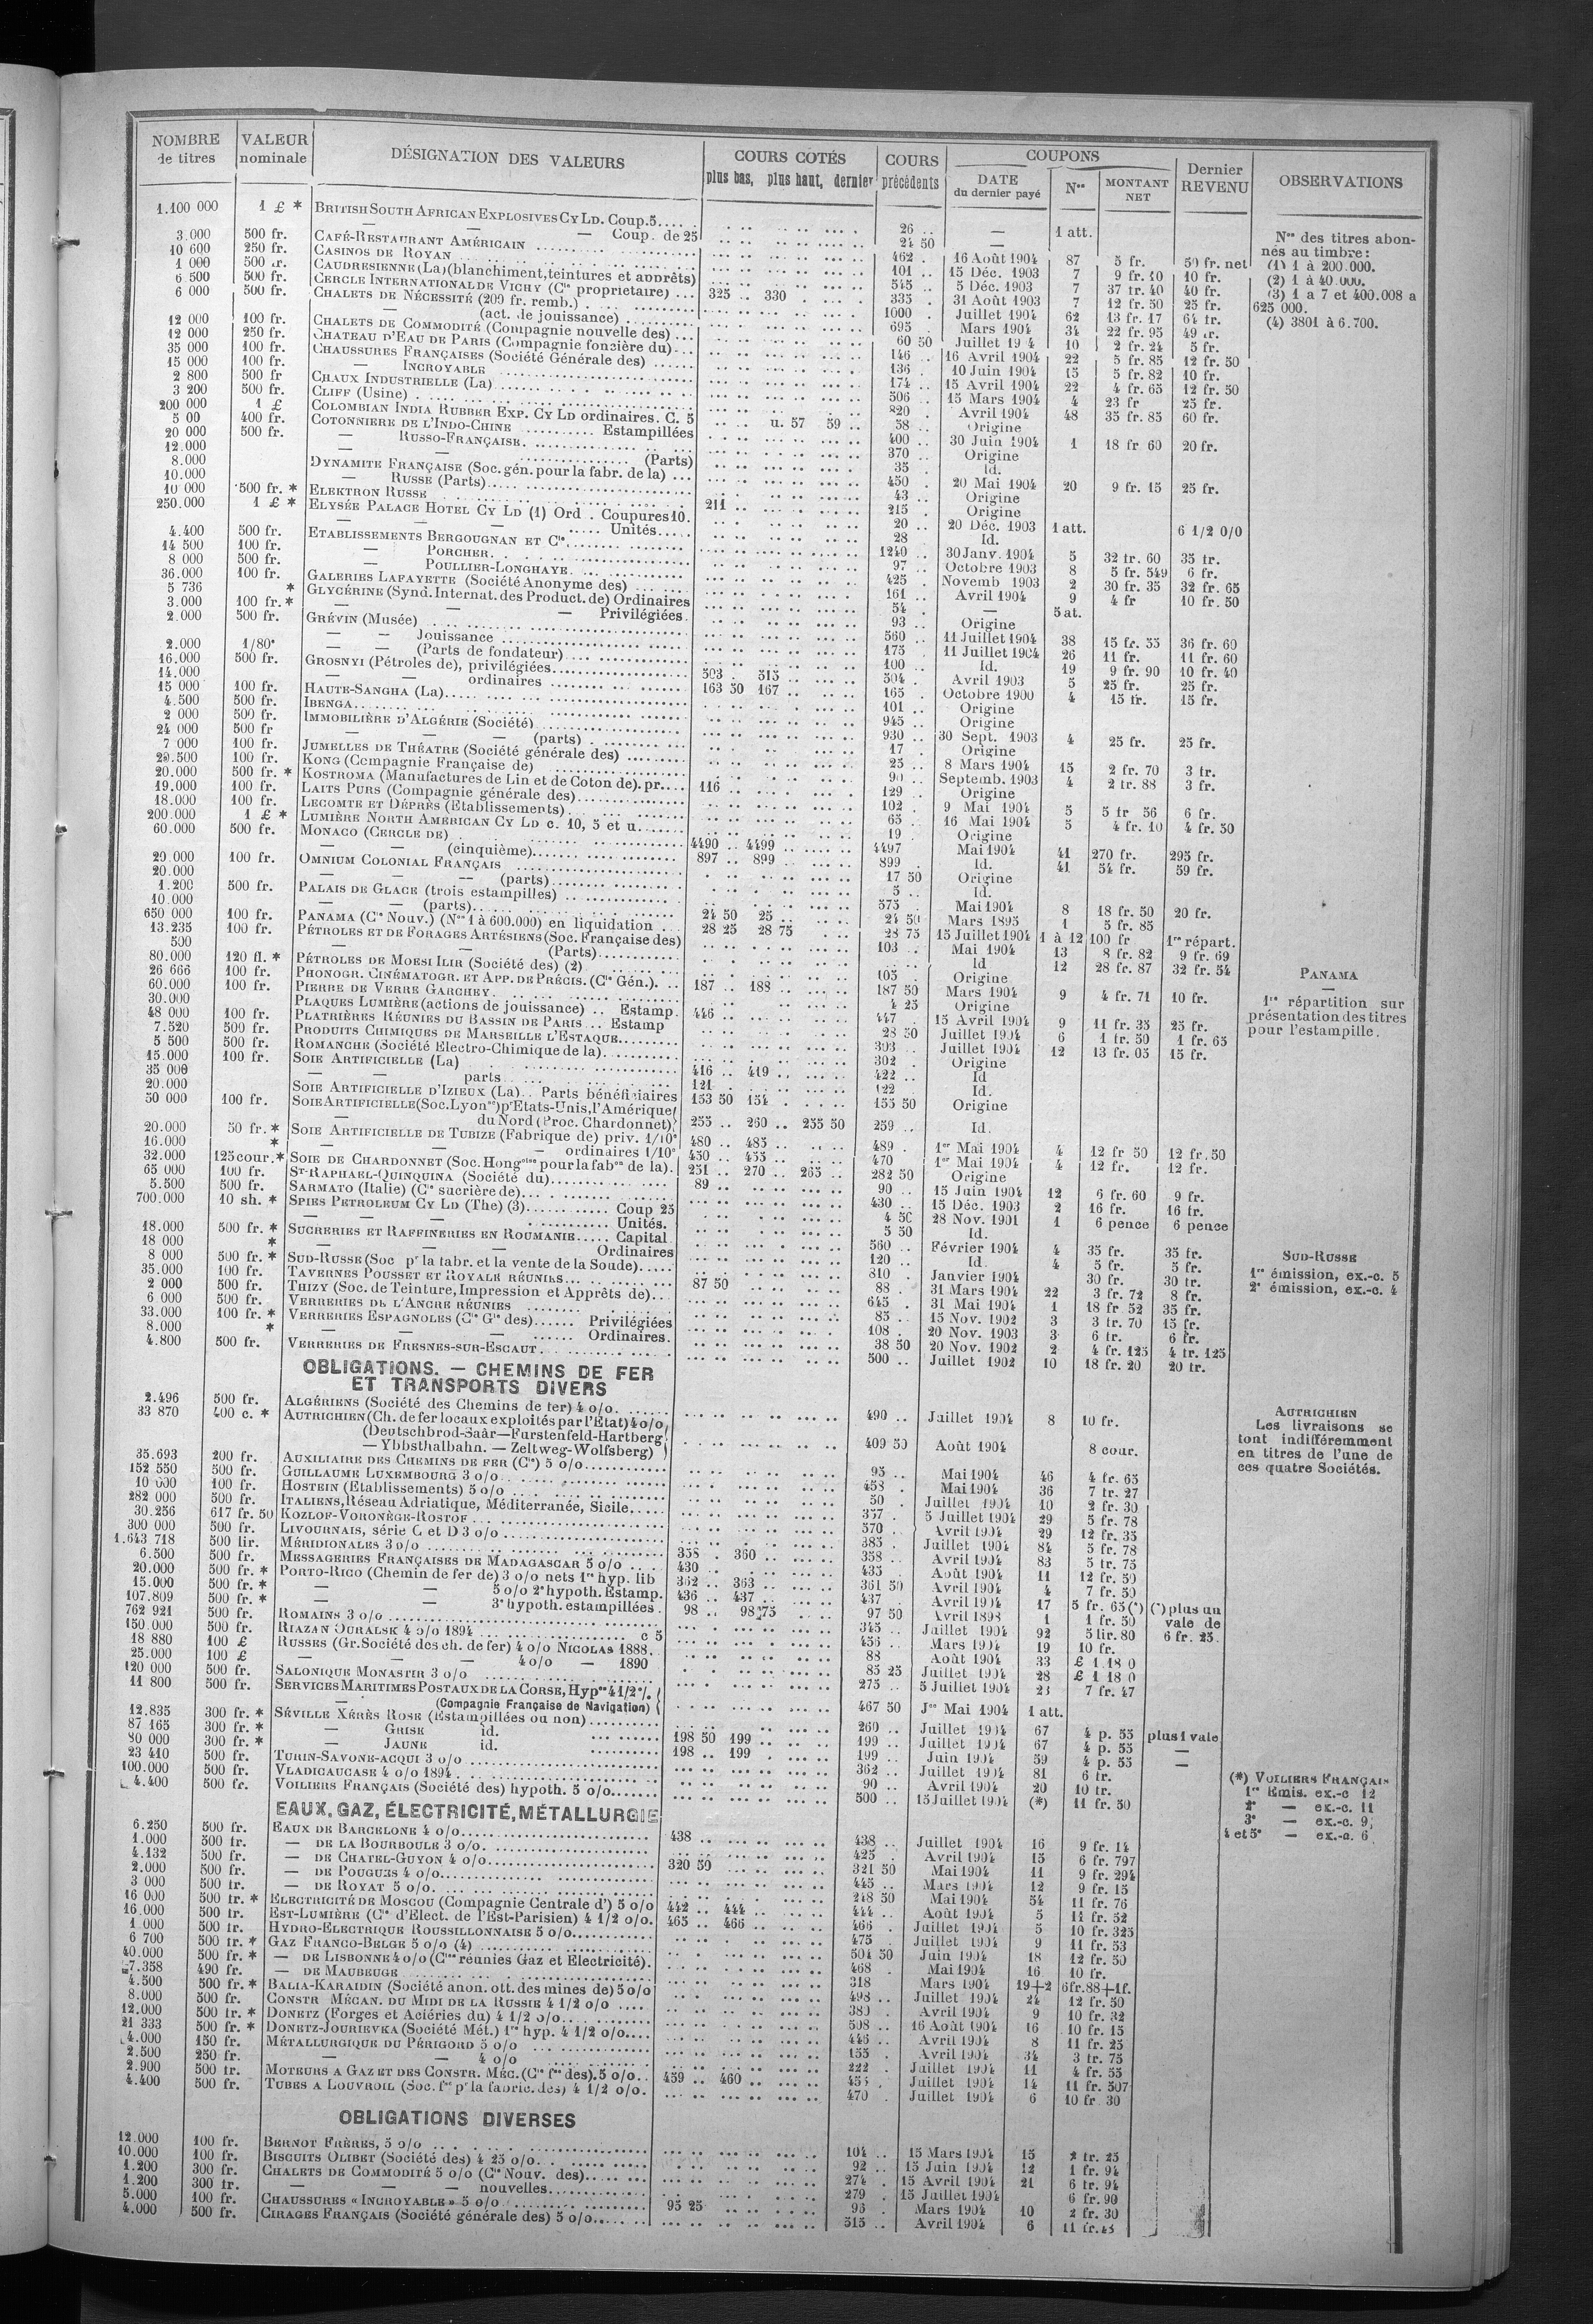 NOMBRE de titres
VALEUR nominale
DÉSIGNATION DES VALEURS
COURS COTÉS
plus bas, plus haut, dernier
COURS précédents
COUPONS
DATE du dernier payé
Nos
MONTANT NET
Dernier REVENU
OBSERVATIONS
1.100 000 1 £ * BRITISH SOUTH AFRICAN EXPLOSIVES CY LD. Coup.5.... 26 .. — 1 att.
— — Coup. de 25 24 50 —
3.000 500 fr. CAFÉ-RESTAURANT AMÉRICAIN 462 . 16 Août 1904 87 5 fr. 50 fr. net
10 600 250 fr. CASINOS DE ROYAN 101 .. 15 Déc. 1903 7 9 fr. 40 10 fr.
1 000 500 fr. CAUDRESIENNE (La) (blanchiment, teintures et apprêts) 545 .. 5 Déc. 1903 7 37 fr. 40 40 fr.
6 500 500 fr. CERCLE INTERNATIONAL DE VICHY (Cie proprietaire) ... 325 .. 330 335 . 31 Août 1903 7 12 fr. 50 25 fr.
6 000 500 fr. CHALETS DE NÉCESSITÉ (200 fr. remb.) 1000 . Juillet 1904 62 13 fr. 17 64 fr.
— (act. de jouissance) 695 . Mars 1904 34 22 fr. 95 49 fr.
12 000 100 fr. CHALETS DE COMMODITÉ (Compagnie nouvelle des) ... 60 50 Juillet 19 4 10 2 fr. 24 5 fr.
12 000 250 fr. CHATEAU D'EAU DE PARIS (Compagnie foncière du) ... 146 .. 16 Avril 1904 22 5 fr. 85 12 fr. 50
35 000 100 fr. CHAUSSURES FRANÇAISES (Société Générale des) 136 . 10 Juin 1904 15 5 fr. 82 10 fr.
15 000 100 fr. — INCROYABLE 174 .. 15 Avril 1904 22 4 fr. 65 12 fr. 50
2 800 500 fr CHAUX INDUSTRIELLE (La) 506 .. 15 Mars 1904 4 23 fr 25 fr.
3 200 500 fr. CLIFF (Usine) 820 . Avril 1904 48 35 fr. 85 60 fr.
200 000 1 £ COLOMBIAN INDIA RUBBER EXP. CY LD ordinaires. C. 5 u. 57 59 .. 58 .. Origine
5 00 400 fr. COTONNIERE DE L'INDO-CHINE Estampillées 400 .. 30 Juin 1904 1 18 fr 60 20 fr.
20 000 500 fr. — RUSSO-FRANÇAISE. 370 . Origine
12.000 — — (Parts) 35 . Id.
8.000 DYNAMITE FRANÇAISE (Soc. gén. pour la fabr. de la) ... 450 . 20 Mai 1904 20 9 fr. 15 25 fr.
10.000 — RUSSE (Parts) 43 .. Origine
10 000 500 fr. * ELEKTRON RUSSE 211 .. 215 . Origine
250.000 1 £ * ELYSÉE PALACE HOTEL CY LD (1) Ord . Coupures 10. 20 .. 20 Déc. 1903 1 att. 6 1/2 0/0
— — Unités 28 Id.
4.400 500 fr. ETABLISSEMENTS BERGOUGNAN ET Cie. 1240 .. 30 Janv. 1904 5 32 fr. 60 35 fr.
14 500 100 fr. — PORCHER. 97 .. Octobre 1903 8 5 fr. 549 6 fr.
8 000 500 fr. — POULLIER-LONGHAYE. 425 . Novemb 1903 2 30 fr. 35 32 fr. 65
36.000 100 fr. GALERIES LAFAYETTE (Société Anonyme des) 161 .. Avril 1904 9 4 fr 10 fr. 50
5 736 * GLYCÉRINE (Synd. Internat. des Product. de) Ordinaires 54 . — 5 at.
3.000 100 fr. * — — Privilégiées. 93 .. Origine
2.000 500 fr. GRÉVIN (Musée) 560 .. 11 Juillet 1904 38 15 fr. 55 36 fr. 60
— — Jouissance 175 11 Juillet 1904 26 11 fr. 11 fr. 60
2.000 1/80e — — (Parts de fondateur) 100 .. Id. 19 9 fr. 90 10 fr. 40
16.000 500 fr. GROSNYI (Pétroles de), privilégiées 503 . 515 504 . Avril 1903 5 25 fr. 25 fr.
14.000 — — ordinaires 163 50 167 165 . Octobre 1900 4 15 fr. 15 fr.
15 000 100 fr. HAUTE-SANGHA (La) 101 .. Origine
4.500 500 fr. IBENGA 945 .. Origine
2 000 500 fr. IMMOBILIÈRE D'ALGÉRIE (Société) 930 .. 30 Sept. 1903 4 25 fr. 25 fr.
24 000 500 fr — — (parts) 17 . Origine
7 000 100 fr. JUMELLES DE THÉATRE (Société générale des) 25 .. 8 Mars 1904 15 2 fr. 70 3 fr.
20.500 100 fr. KONG (Compagnie Française de) 90 .. Septemb. 1903 4 2 fr. 88 3 fr.
20.000 500 fr. * KOSTROMA (Manufactures de Lin et de Coton de). pr. 116 129 .. Origine
19.000 100 fr. LAITS PURS (Compagnie générale des) 102 . 9 Mai 1904 5 5 fr 56 6 fr.
18.000 100 fr. LECOMTE ET DÉPRÈS (Etablissements) 65 .. 16 Mai 1904 5 4 fr. 10 4 fr. 50
200.000 1 £ * LUMIÈRE NORTH AMERICAN CY LD c. 10, 5 et u. 19 . Origine
60.000 500 fr. MONACO (CERCLE DE) 4490 .. 4499 4497 Mai 1904 41 270 fr. 295 fr.
— — (cinquième) 897 .. 899 899 Id. 41 54 fr. 59 fr.
20.000 100 fr. OMNIUM COLONIAL FRANÇAIS 17 50 Origine
20.000 — — (parts) 5 .. Id.
1.200 500 fr. PALAIS DE GLACE (trois estampilles) 575 . Mai 1904 8 18 fr. 50 20 fr.
10.000 — — (parts) 24 50 25 .. 24 50 Mars 1895 1 5 fr. 85
650 000 100 fr. PANAMA (Cie Nouv.) (Nos 1 à 600.000) en liquidation 28 25 28 75 28 75 15 Juillet 1904 1 à 12 100 fr 1re répart.
13.235 100 fr. PÉTROLES ET DE FORAGES ARTÉSIENS (Soc. Française des) 103 .. Mai 1904 13 8 fr. 82 9 fr. 69
500 — — (Parts) Id 12 28 fr. 87 32 fr. 54
80.000 120 fl. * PÉTROLES DE MOESI ILIR (Société des) (2) 105 . Origine
26 666 100 fr. PHONOGR. CINÉMATOGR. ET APP. DE PRÉCIS. (Cie Gén.). 187 .. 188 187 50 Mars 1904 9 4 fr. 71 10 fr.
60.000 100 fr. PIERRE DE VERRE GARCHEY 4 25 Origine
30.000 PLAQUES LUMIÈRE (actions de jouissance) Estamp. 446 447 15 Avril 1904 9 11 fr. 35 25 fr.
48 000 100 fr. PLATRIÈRES RÉUNIES DU BASSIN DE PARIS ... Estamp 28 50 Juillet 1904 6 1 fr. 50 1 fr. 65
7.520 500 fr. PRODUITS CHIMIQUES DE MARSEILLE L'ESTAQUE 303 .. Juillet 1904 12 13 fr. 05 15 fr.
5 500 500 fr. ROMANCHE (Société Electro-Chimique de la) 302 Origine
15.000 100 fr. SOIE ARTIFICIELLE (La) 416 .. 419 422 .. Id
35 000 — — parts 121 122 Id.
20.000 SOIE ARTIFICIELLE D'IZIEUX (La).. Parts bénéficiaires 153 50 154 155 50 Origine
50 000 100 fr. SOIE ARTIFICIELLE (Soc. Lyonse) pr Etats-Unis, l'Amérique
— du Nord (Proc. Chardonnet) 255 .. 260 .. 255 50 259 .. Id.
20.000 50 fr. * SOIE ARTIFICIELLE DE TUBIZE (Fabrique de) priv. 1/10e 480 .. 485 489 . 1er Mai 1904 4 12 fr 50 12 fr. 50
16.000 * — — ordinaires 1/10e 450 .. 455 470 1er Mai 1904 4 12 fr. 12 fr.
32.000 125 cour. * SOIE DE CHARDONNET (Soc. Hongoise pour la fabon de la). 251 .. 270 .. 265 282 50 Origine
65 000 100 fr. ST-RAPHAEL-QUINQUINA (Société du) 89 .. 90 .. 15 Juin 1904 12 6 fr. 60 9 fr.
5.500 500 fr. SARMATO (Italie) (Cie sucrière de) 430 .. 15 Déc. 1903 2 16 fr. 16 fr.
700.000 10 sh. * SPIES PETROLEUM CY LD (The) (3) Coup 25 4 50 28 Nov. 1901 1 6 pence 6 pence
— — Unités. 5 50 Id.
18.000 500 fr. * SUCRERIES ET RAFFINERIES EN ROUMANIE Capital 560 .. Février 1904 4 35 fr. 35 fr.
18 000 * — — Ordinaires 120 .. Id. 4 5 fr. 5 fr.
8 000 500 fr. * SUD-RUSSE (Soc pr la fabr. et la vente de la Soude) 810 . Janvier 1904 30 fr. 30 fr.
35.000 100 fr. TAVERNES POUSSET ET ROYALE RÉUNIES 87 50 88 . 31 Mars 1904 22 3 fr. 72 8 fr.
2 000 500 fr. THIZY (Soc. de Teinture, Impression et Apprêts de) 645 . 31 Mai 1904 1 18 fr 52 35 fr.
6 000 500 fr. VERRERIES DE L'ANCRE RÉUNIES 85 . 15 Nov. 1902 3 3 fr. 70 15 fr.
33.000 100 fr. * VERRERIES ESPAGNOLES (Cie Gle des) Privilégiées 108 . 20 Nov. 1903 3 6 fr. 6 fr.
8.000 * — — Ordinaires. 38 50 20 Nov. 1902 2 4 fr. 125 4 fr. 125
4.800 500 fr. VERRERIES DE FRESNES-SUR-ESCAUT 500 .. Juillet 1902 10 18 fr. 20 20 fr.
Nos des titres abonnés au timbre:
(1) 1 à 200.000.
(2) 1 à 40.000.
(3) 1 a 7 et 400.008 a 625 000.
(4) 3801 à 6.700.
PANAMA
—
1re répartition sur
présentation des titres
pour l'estampille.
SUD-RUSSE
1re émission, ex-c. 5
2e émission, ex-c. 4
OBLIGATIONS. — CHEMINS DE FER
ET TRANSPORTS DIVERS
2.496 500 fr. ALGÉRIENS (Société des Chemins de fer) 4 o/o. 490 .. Juillet 1904 8 10 fr.
33 870 400 c. * AUTRICHIEN (Ch. de fer locaux exploités par l'État) 4 o/o
(Deutschbrod-Saâr—Furstenfeld-Hartberg
— Ybbsthalbahn. — Zeltweg-Wolfsberg) 409 50 Août 1904 8 cour.
35.693 200 fr. AUXILIAIRE DES CHEMINS DE FER (Cie) 5 o/o 95 .. Mai 1904 46 4 fr. 65
152 550 500 fr. GUILLAUME LUXEMBOURG 3 o/o 458 . Mai 1904 36 7 fr. 27
10 600 100 fr. HOSTEIN (Etablissements) 5 o/o 50 . Juillet 1904 10 2 fr. 30
282 000 500 fr. ITALIENS, Réseau Adriatique, Méditerranée, Sicile 357 . 5 Juillet 1904 29 5 fr. 78
30.256 617 fr. 50 KOZLOF-VORONÈGE-ROSTOF 570 . Avril 1904 29 12 fr. 35
300 000 500 fr. LIVOURNAIS, série C et D 3 o/o 385 . Juillet 1904 84 5 fr. 78
1.643 718 500 lir. MÉRIDIONALES 3 o/o 358 . 360 358 . Avril 1904 83 5 fr. 75
6.500 500 fr. MESSAGERIES FRANÇAISES DE MADAGASCAR 5 o/o 430 435 Août 1904 11 12 fr. 50
20.000 500 fr. * PORTO-RICO (Chemin de fer de) 3 o/o nets 1re hyp. lib 362 .. 363 361 50 Avril 1904 4 7 fr. 50
15.000 500 fr. * — — 5 o/o 2e hypoth. Estamp. 436 .. 437 437 Avril 1904 17 5 fr. 65 (*) (*) plus un
107.809 500 fr. * — — 3e hypoth. estampillées 98 .. 98 75 97 50 Avril 1898 1 1 fr. 50 vale de
762 921 500 fr. ROMAINS 3 o/o 345 .. Juillet 1904 92 5 lir. 80 6 fr. 25.
150.000 500 fr. RIAZAN OURALSK 4 o/o 1894 c 5 456 .. Mars 1904 19 10 fr.
18 880 100 £ RUSSES (Gr. Société des ch. de fer) 4 o/o NICOLAS 1888 88 Août 1904 33 £ 1 18 0
25.000 100 £ — — 4 o/o — 1890 85 25 Juillet 1904 28 £ 1 18 0
120 000 500 fr. SALONIQUE MONASTIR 3 o/o 275 .. 5 Juillet 1904 23 7 fr. 47
11 800 500 fr. SERVICES MARITIMES POSTAUX DE LA CORSE, Hypre 4 1/2 %
— (Compagnie Française de Navigation) 467 50 Jer Mai 1904 1 att.
12.835 300 fr. * SÉVILLE XÉRÈS ROSE (Estampillées ou non) 260 .. Juillet 1904 67 4 p. 55 plus 1 vale
87 165 300 fr. * — GRISE id. 198 50 199 199 .. Juillet 1904 67 4 p. 55 —
80 000 300 fr. * — JAUNE id. 198 .. 199 199 .. Juin 1904 59 4 p. 55 —
23 410 500 fr. TURIN-SAVONE-ACQUI 3 o/o 362 .. Juillet 1904 81 6 fr.
100.000 500 fr. VLADICAUCASE 4 o/o 1894 90 .. Avril 1904 20 10 fr.
4.400 500 fr. VOILIERS FRANÇAIS (Société des) hypoth. 5 o/o 500 .. 15 Juillet 1904 (*) 11 fr. 50
AUTRICHIEN
Les livraisons se
tont indifféremment
en titres de l'une de
ces quatre Sociétés.
(*) VOILIERS FRANÇAIS
1re Emis. ex-c 12
2e — ex-c. 11
3e — ex-c. 9
4 et 5e — ex-c. 6
EAUX, GAZ, ÉLECTRICITÉ, MÉTALLURGIE
6.250 500 fr. EAUX DE BARCELONE 4 o/o 438 .. 438 .. Juillet 1904 16 9 fr. 14
1.000 500 fr. — DE LA BOURBOULE 3 o/o. 425 . Avril 1904 15 6 fr. 797
4.132 500 fr. — DE CHATEL-GUYON 4 o/o 320 50 321 50 Mai 1904 11 9 fr. 294
2.000 500 fr. — DE POUGUES 4 o/o 445 .. Mars 1904 12 9 fr. 15
3 000 500 fr. — DE ROYAT 5 o/o 248 50 Mai 1904 54 11 fr. 76
16 000 500 fr. * ELECTRICITÉ DE MOSCOU (Compagnie Centrale d') 5 o/o 442 .. 444 444 .. Août 1904 5 11 fr. 52
16.000 500 fr. EST-LUMIÈRE (Cie d'Elect. de l'Est-Parisien) 4 1/2 o/o. 465 .. 466 466 . Juillet 1904 5 10 fr. 325
1 000 500 fr. HYDRO-ELECTRIQUE ROUSSILLONNAISE 5 o/o 475 . Juillet 1904 9 11 fr. 53
6 700 500 fr. * GAZ FRANCO-BELGE 5 o/o (4) 504 50 Juin 1904 18 12 fr. 50
40.000 500 fr. * — DE LISBONNE 4 o/o (Cies réunies Gaz et Électricité). 468 . Mai 1904 16 10 fr.
7.358 490 fr. — DE MAUBEUGE 318 Mars 1904 19+2 6fr.88+1f.
4.500 500 fr. * BALIA-KARAIDIN (Société anon. ott. des mines de) 5 o/o 498 .. Juillet 1904 24 12 fr. 50
8.000 500 fr. CONSTR MÉCAN. DU MIDI DE LA RUSSIE 4 1/2 o/o 389 . Avril 1904 9 10 fr. 32
12.000 500 fr. * DONETZ (Forges et Aciéries du) 4 1/2 o/o 508 .. 16 Août 1904 16 10 fr. 15
21 333 500 fr. * DONETZ-JOURIEVKA (Société Mét.) 1re hyp. 4 1/2 o/o 446 .. Avril 1904 8 11 fr. 25
4.000 150 fr. MÉTALLURGIQUE DU PÉRIGORD 5 o/o 155 . Avril 1904 34 3 fr. 75
2.500 250 fr. — — 4 o/o 222 . Juillet 1904 11 4 fr. 55
2.900 500 fr. MOTEURS A GAZ ET DES CONSTR. MÉC. (Cie fse des). 5 o/o 459 .. 460 Juillet 1904 14 11 fr. 507
4.400 500 fr. TUBES A LOUVROIL (Soc. fse pr la fabric. des) 4 1/2 o/o. 470 . Juillet 1904 6 10 fr 30
OBLIGATIONS DIVERSES
12.000 100 fr. BERNOT FRÈRES, 5 o/o 104 .. 15 Mars 1904 15 2 fr. 25
10.000 100 fr. BISCUITS OLIBET (Société des) 4 25 o/o 92 .. 15 Juin 1904 12 1 fr. 94
1.200 300 fr. CHALETS DE COMMODITÉ 5 o/o (Cie Nouv. des) 274 . 15 Avril 1904 21 6 fr. 94
1.200 300 fr. — — nouvelles 279 . 15 Juillet 1904 6 fr. 90
5.000 100 fr. CHAUSSURES « INCROYABLE » 5 o/o 95 25 96 . Mars 1904 10 2 fr. 30
4.000 500 fr. CIRAGES FRANÇAIS (Société générale des) 5 o/o 515 .. Avril 1904 6 11 fr.